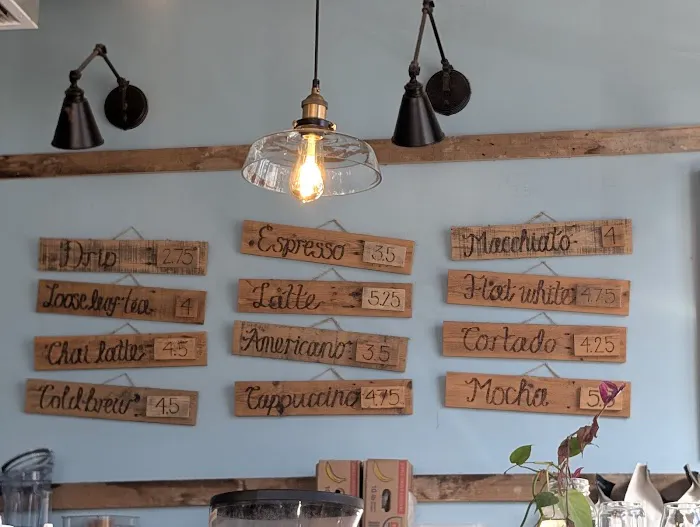 Drip 2.75
Loose leaf tea 4
Chai latte 4.5
Cold brew 4.5
Espresso 3.5
Latte 5.25
Americano 3.5
Cappuccino 4.75
Macchiato 4
Flat white 4.75
Cortado 4.25
Mocha